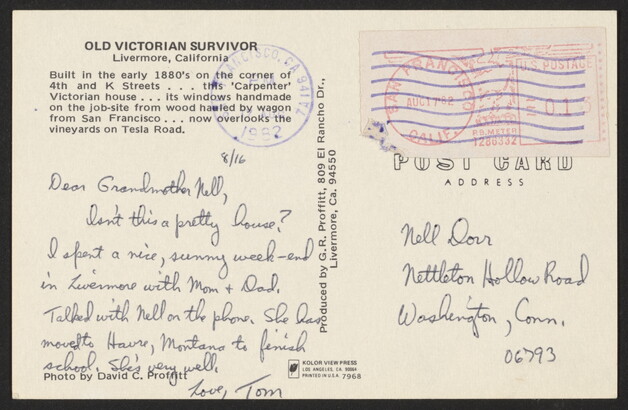 OLD VICTORIAN SURVIVOR
Livermore, California
Built in the early 1880's on the corner of
4th and K Streets . . . this 'Carpenter'
Victorian house . . . its windows handmade
on the job-site from wood hauled by wagon
from San Francisco . . . now overlooks the
vineyards on Tesla Road.
8/16
Dear Grandmother Nell,
Isn't this a pretty house?
I spent a nice, sunny week-end
in Livermore with Mom & Dad.
Talked with Nell on the phone. She has
moved to Havre, Montana to finish
school. She's very well.
Love, Tom
Photo by David C. Proffitt
Produced by G.R. Proffitt, 809 El Rancho Dr.,
Livermore, Ca. 94550
KOLOR VIEW PRESS
LOS ANGELES, CA. 90064
PRINTED IN U.S.A. 7968
FRANCISCO, CA 9417
1982
SAN FRANCISCO
AUG 17 '82
CALIF.
U.S. POSTAGE
P.B. METER
1286332
POST CARD
ADDRESS
Nell Dorr
Nettleton Hollow Road
Washington, Conn.
06793